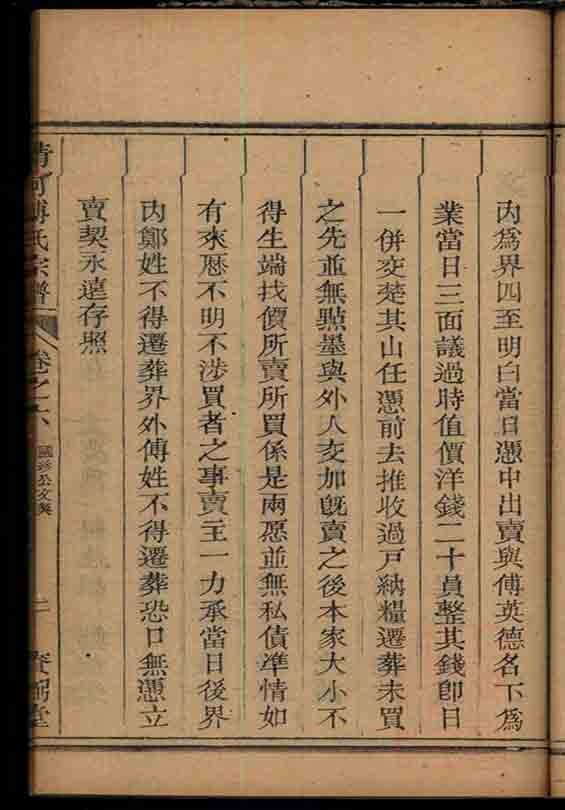 內爲界四至明白當日憑中出賣與傅英德名下爲
業當日三面議過時值價洋錢二十員整其錢卽日
一併交楚其山任憑前去推收過戶納糧遷葬未買
之先並無點墨與外人交加旣賣之後本家大小不
得生端找價所賣所買係是兩愿並無私債准情如
有來歷不明不涉買者之事賣主一力承當日後界
內鄭姓不得遷葬界外傅姓不得遷葬恐口無憑立
賣契永遠存照
清河傅氏宗譜 卷之六 二